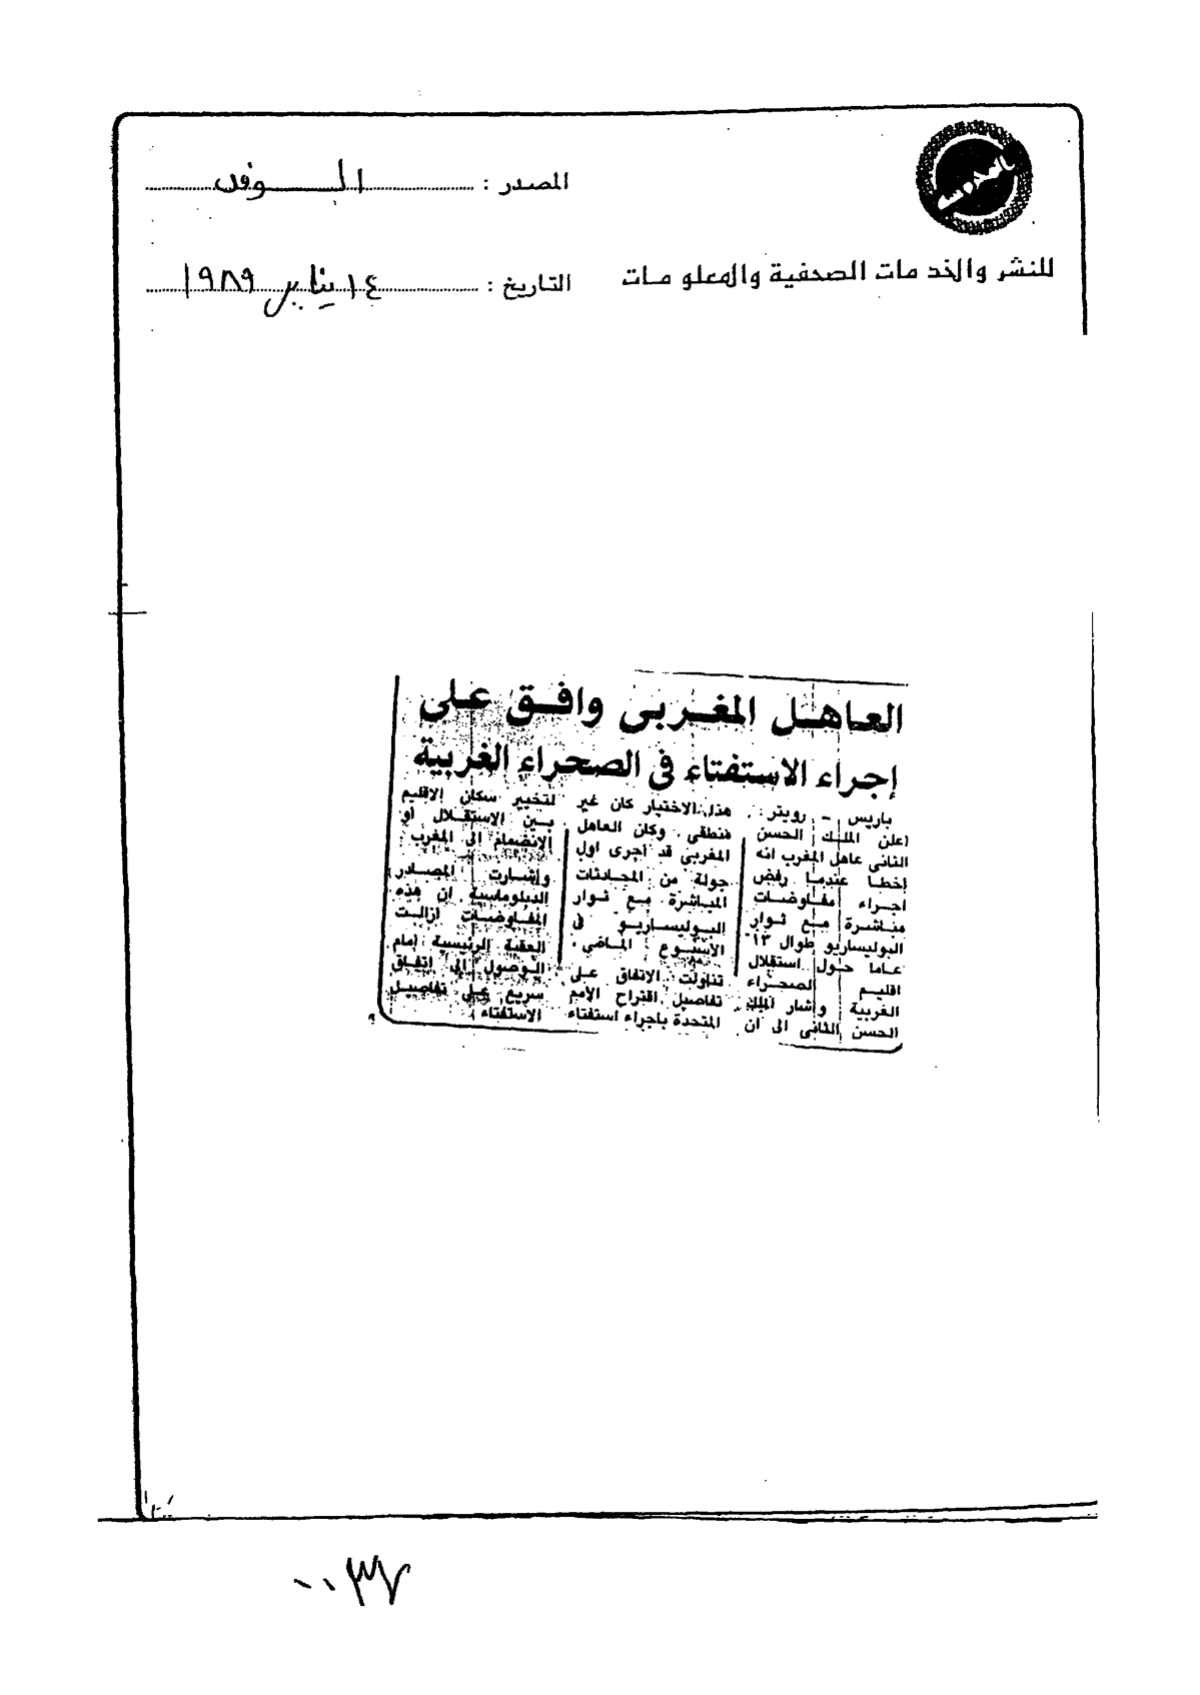 المصدر : الوفد
للنشر والخدمات الصحفية والمعلومات
التاريخ : ١٤ يناير ١٩٨٩
العاهل المغربى وافق على
إجراء الاستفتاء فى الصحراء الغربية
باريس - رويتر :
اعلن الملك الحسن
الثانى عاهل المغرب انه
اخطا عندما رفض
اجراء مفاوضات
مباشرة مع ثوار
البوليساريو طوال ١٣
عاما حول استقلال
اقليم الصحراء
الغربية واشار الملك
الحسن الثانى الى ان
هذا الاختيار كان غير
منطقى . وكان العاهل
المغربى قد اجرى اول
جولة من المحادثات
المباشرة مع ثوار
البوليساريو فى
الاسبوع الماضى .
تناولت الاتفاق على
تفاصيل اقتراح الامم
المتحدة باجراء استفتاء
لتخيير سكان الاقليم
بين الاستقلال او
الانضمام الى المغرب
واشارت المصادر
الدبلوماسية ان هذه
المفاوضات ازالت
العقبة الرئيسية امام
الوصول الى اتفاق
سريع على تفاصيل
الاستفتاء